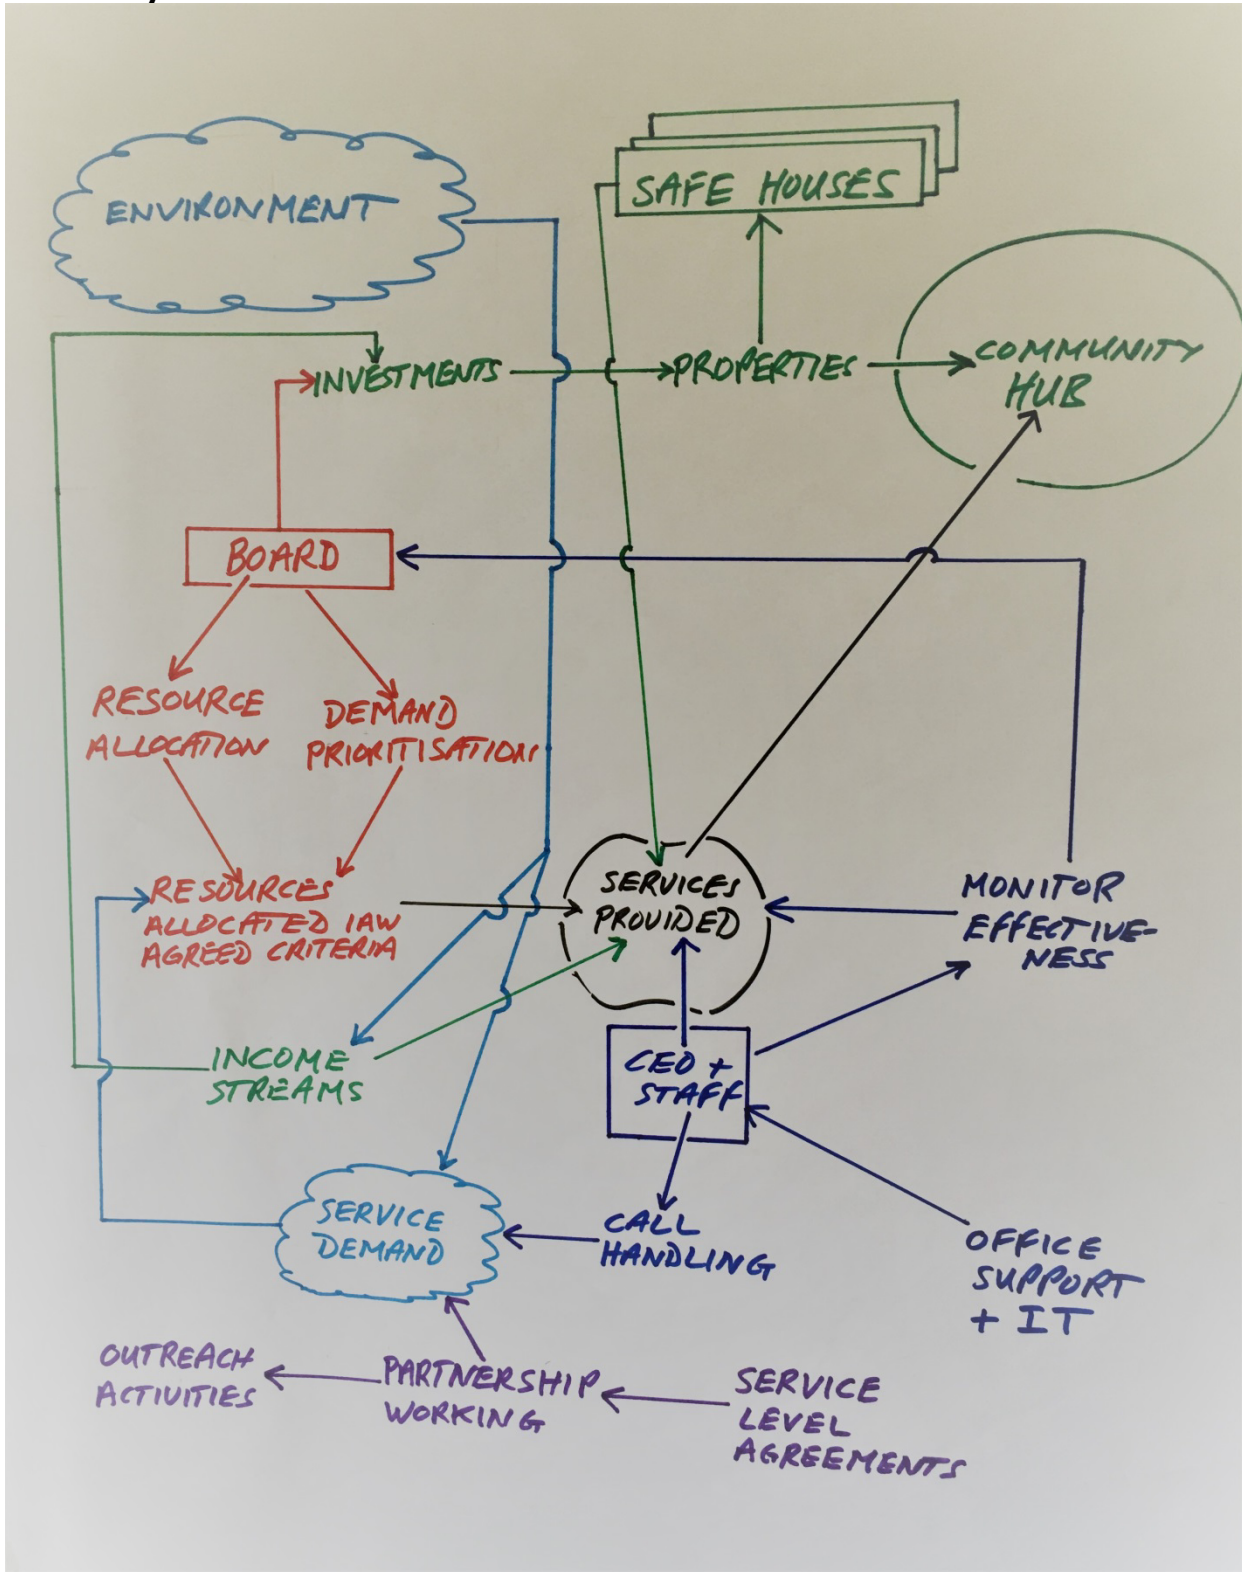 ENVIRONMENT
SAFE HOUSES
INVESTMENTS
PROPERTIES
COMMUNITY
HUB
BOARD
RESOURCE
ALLOCATION
DEMAND
PRIORITISATION
RESOURCES
ALLOCATED IAW
AGREED CRITERIA
SERVICES
PROVIDED
MONITOR
EFFECTIVE-
NESS
INCOME
STREAMS
CEO +
STAFF
SERVICE
DEMAND
CALL
HANDLING
OFFICE
SUPPORT
+ IT
OUTREACH
ACTIVITIES
PARTNERSHIP
WORKING
SERVICE
LEVEL
AGREEMENTS